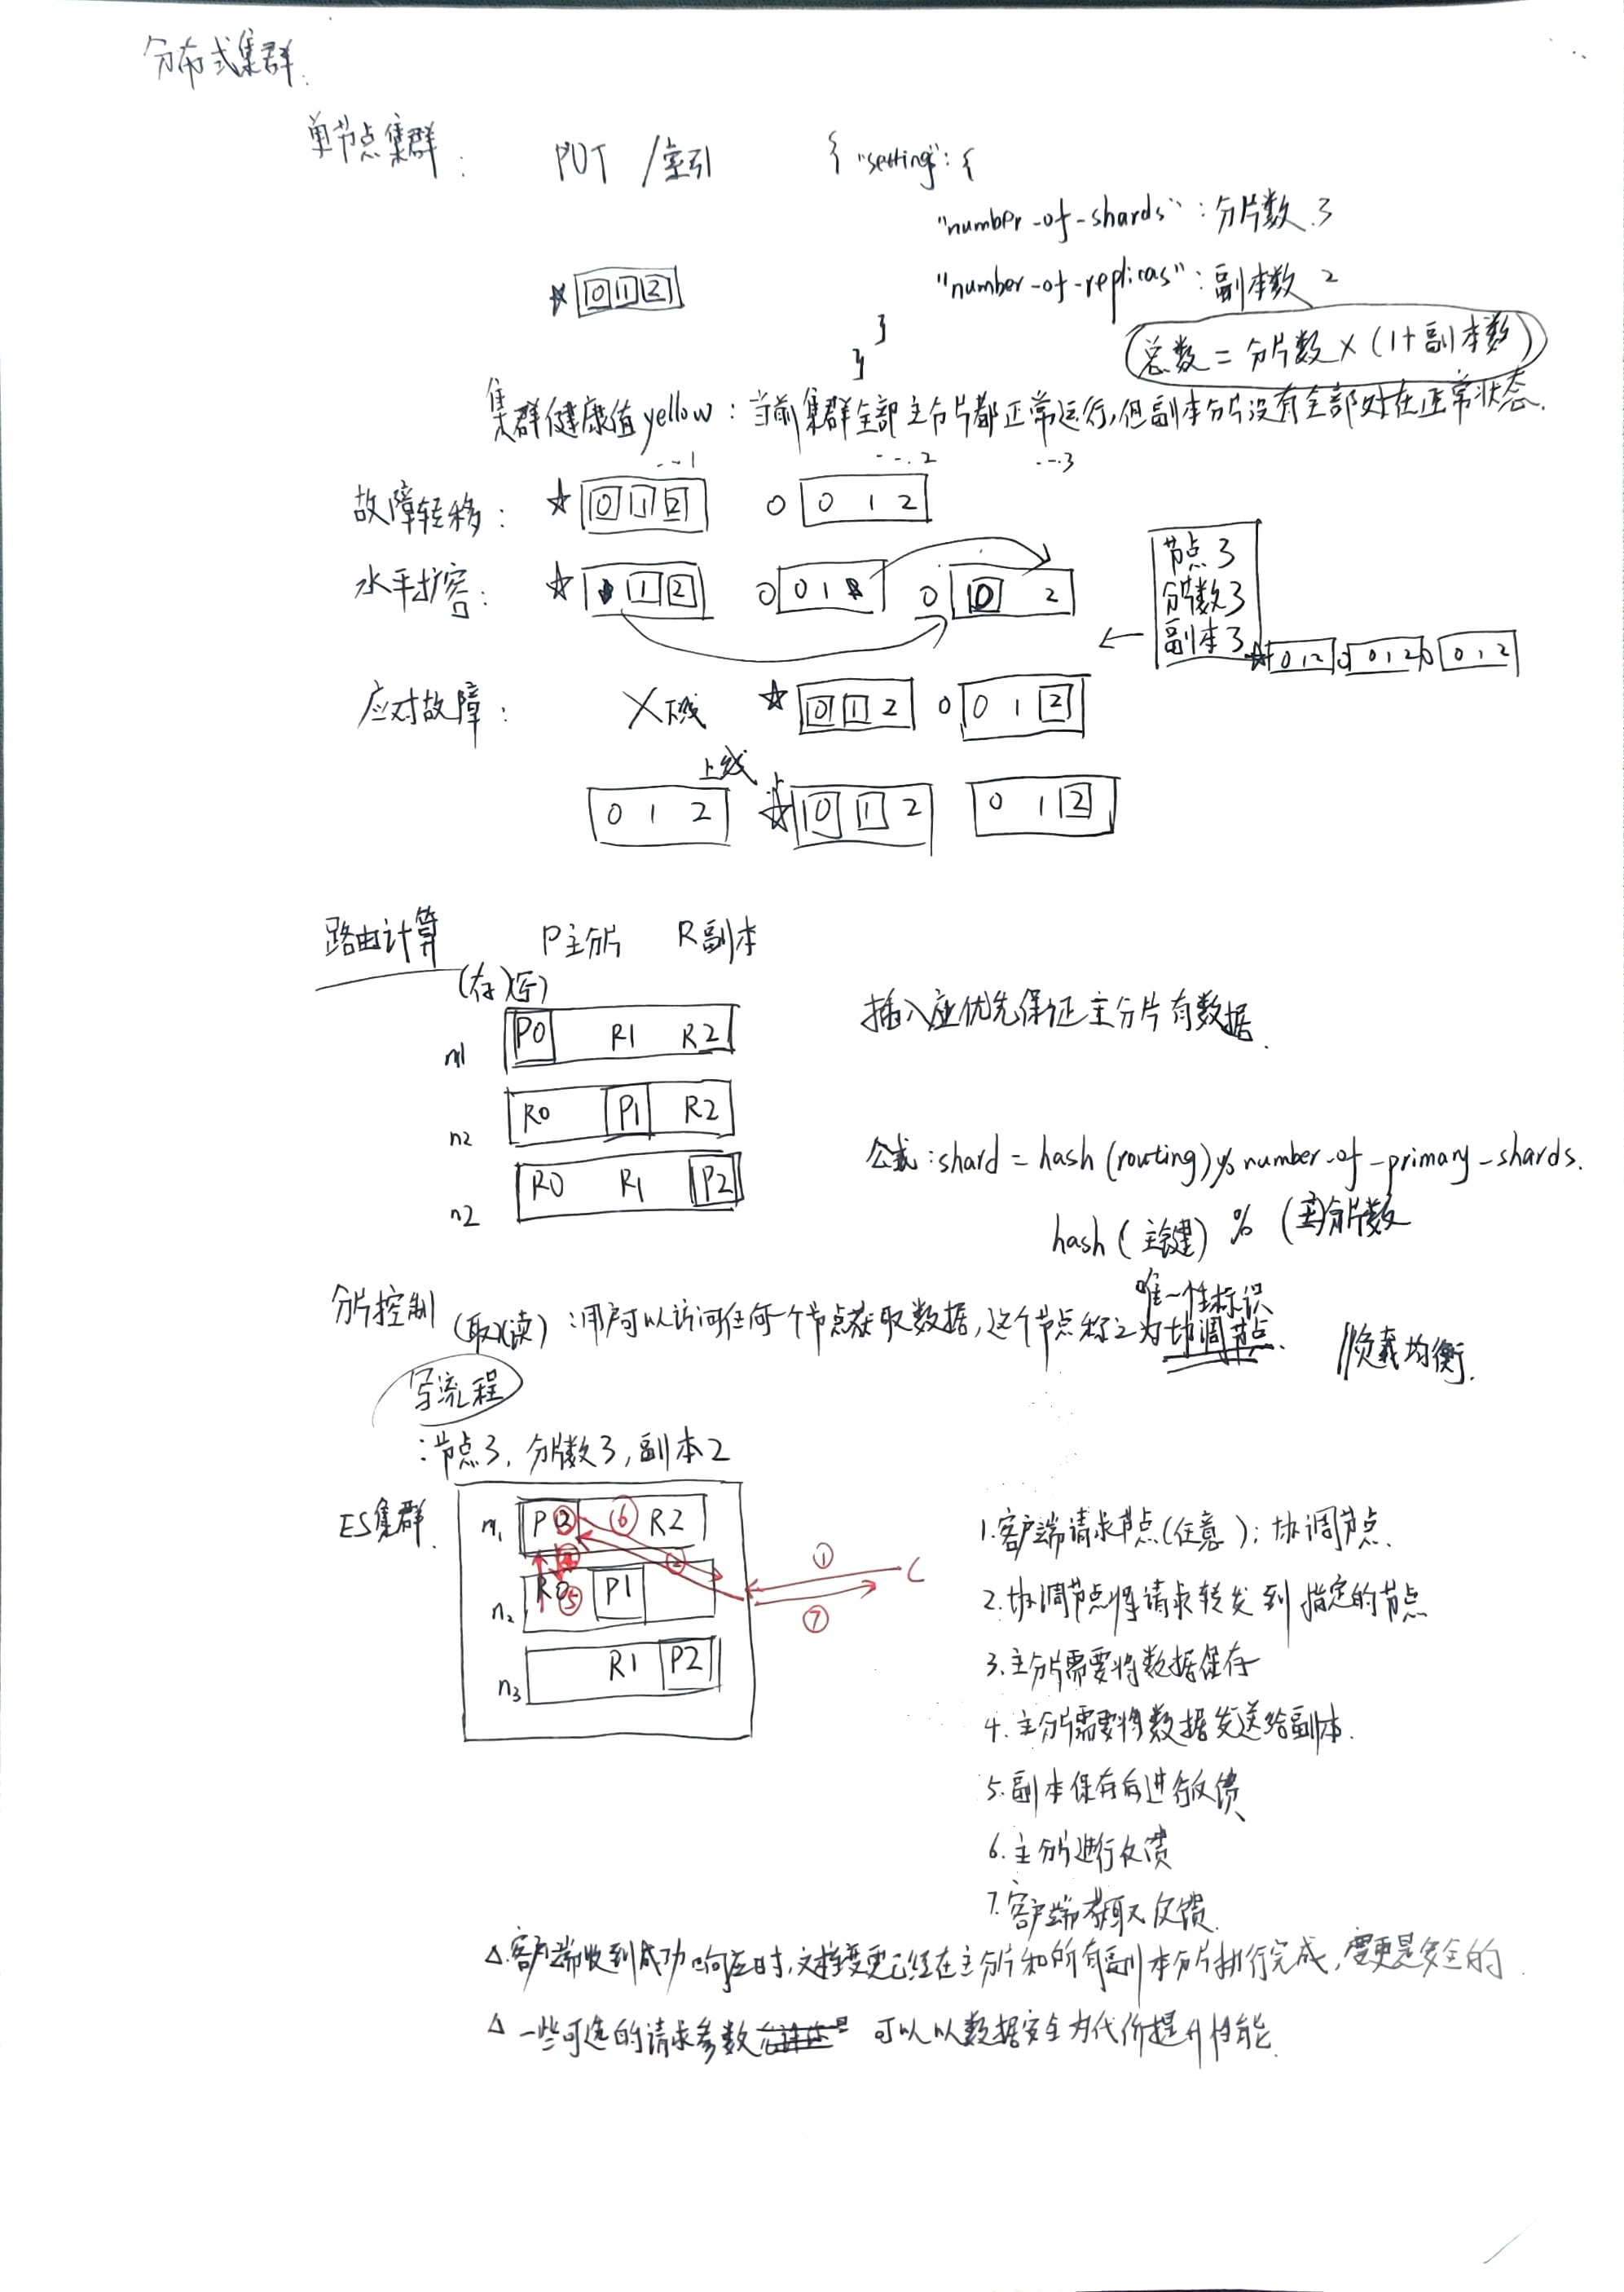 分布式集群:
单节点集群: PUT /索引 { "setting": {
"number-of-shards": 分片数 3
"number-of-replicas": 副本数 2
}
}
总数 = 分片数 × (1+副本数)
集群健康值yellow: 当前集群全部主分片都正常运行,但副本分片没有全部处在正常状态.
☆ 0 1 2
---1 ---2 ---3
故障转移: ☆ 0 1 2 0 0 1 2
水平扩容: ☆ 1 2 0 0 1 0 0 2
节点 3
分片数 3
副本 3
← ☆ 0 1 2 0 0 1 2 0 0 1 2
应对故障: X 下线 ☆ 0 1 2 0 0 1 2
上线
0 1 2 ☆ 0 1 2 0 1 2
路由计算 P主分片 R副本
(存)(写)
n1 P0 R1 R2
插入应优先保证主分片有数据.
n2 R0 P1 R2
公式: shard = hash (routing) % number-of-primary-shards.
n2 R0 R1 P2
hash (主键) % (主)分片数
唯一性标识
分片控制 (取)(读): 用户可以访问任何一个节点获取数据, 这个节点称之为协调节点. //负载均衡.
写流程
: 节点3, 分片数3, 副本2
ES集群.
n1 P0 ③ ⑥ R2
④ ② ① C
n2 R0 ⑤ P1 ⑦
n3 R1 P2
1.客户端请求节点(任意); 协调节点.
2.协调节点将请求转发到指定的节点
3.主分片需要将数据保存
4.主分片需要将数据发送给副本.
5.副本保存后进行反馈
6.主分片进行反馈
7.客户端获取反馈.
△.客户端收到成功响应时,文档变更已经在主分片和所有副本分片执行完成,变更是安全的.
△ 一些可选的请求参数 可以以数据安全为代价提升性能.